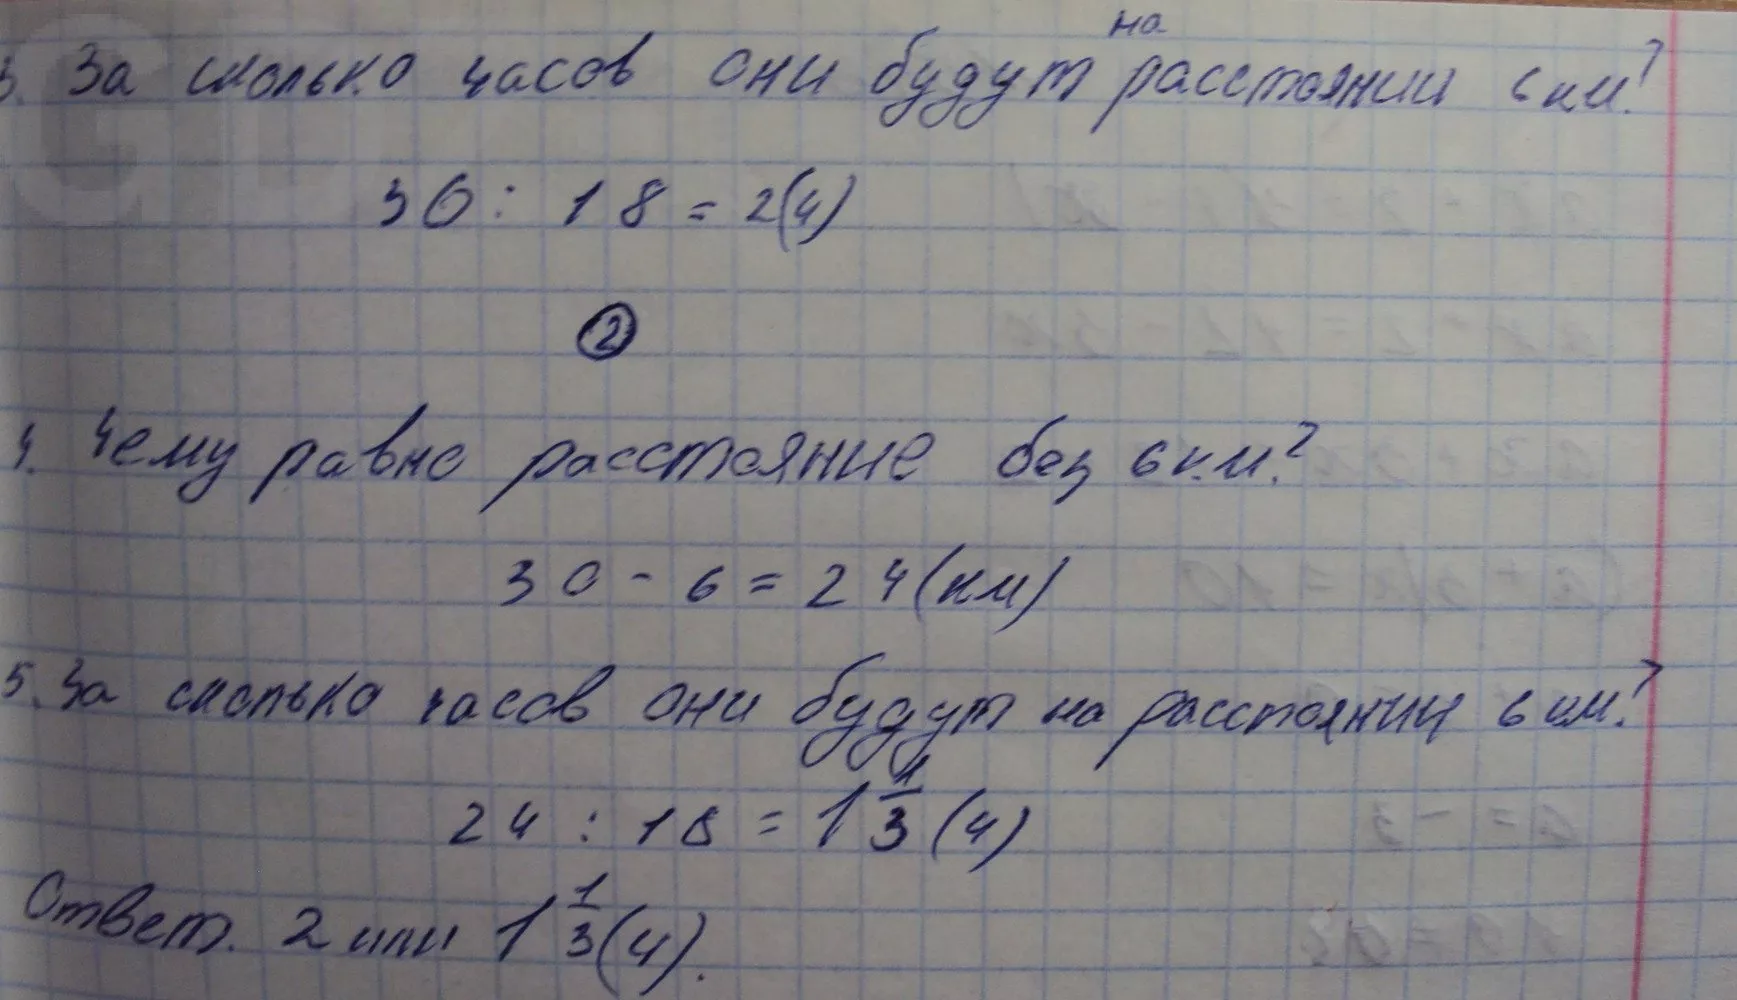 3. За сколько часов они будут на расстоянии 6 км?
36 : 18 = 2(ч)
2
4. Чему равно расстояние без 6 км?
30 - 6 = 24(км)
5. За сколько часов они будут на расстоянии 6 км?
24 : 18 = 1 1/3 (ч)
Ответ. 2 или 1 1/3 (ч).